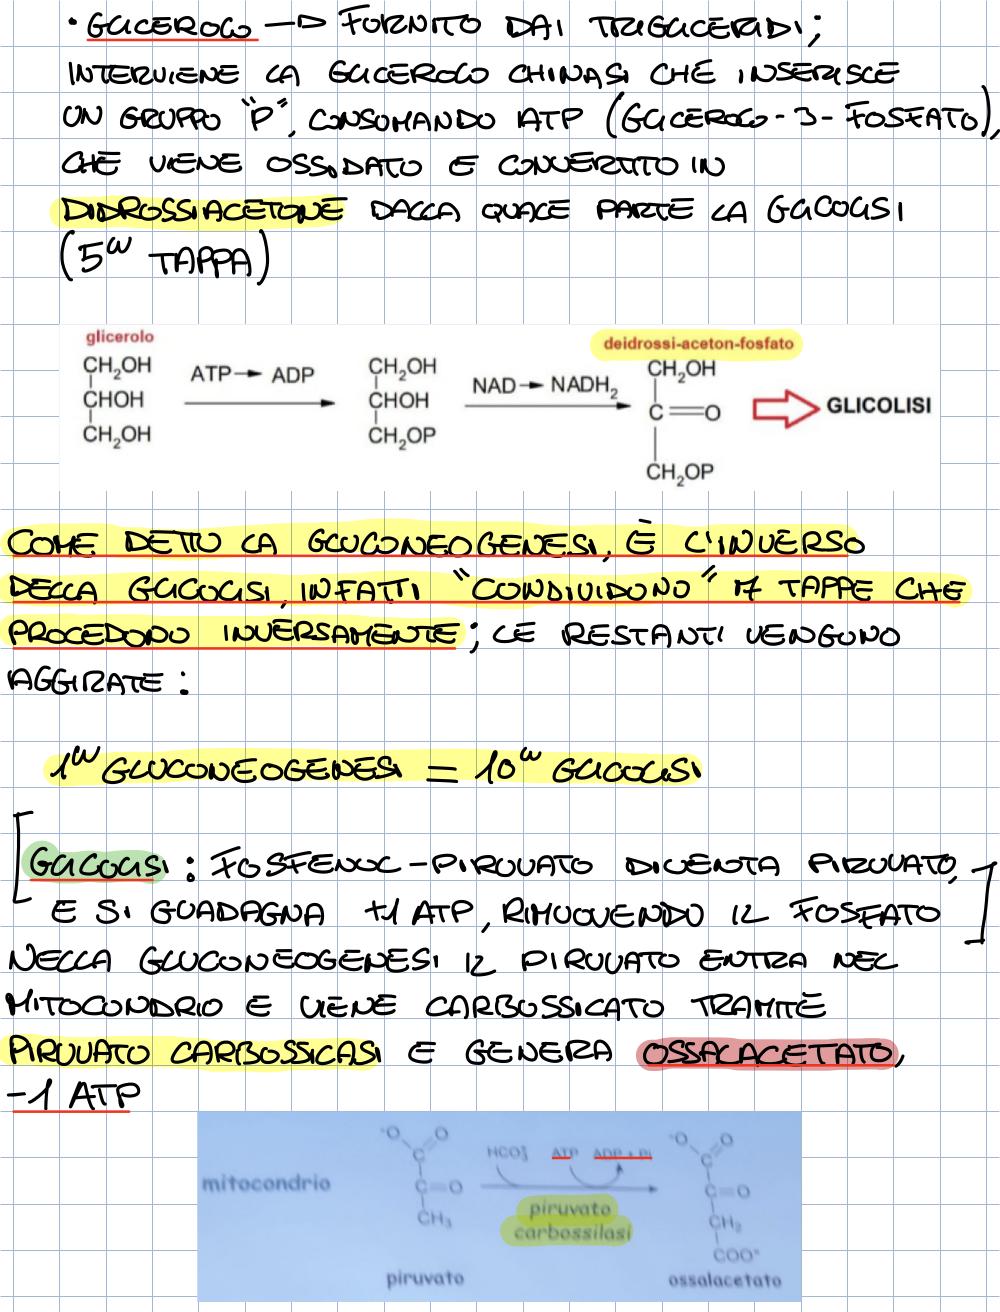 • GLICEROLO → FORNITO DAI TRIGLICERIDI;
INTERVIENE LA GLICEROLO CHINASI CHE INSERISCE
UN GRUPPO "P", CONSUMANDO 1ATP (GLICEROLO-3-FOSFATO),
CHE VIENE OSSIDATO E CONVERTITO IN
DIDROSSIACETONE DALLA QUALE PARTE LA GLICOLISI
(5ª TAPPA)
glicerolo
deidrossi-aceton-fosfato
CH₂OH
CHOH
CH₂OH
ATP → ADP
CH₂OH
CHOH
CH₂OP
NAD → NADH₂
CH₂OH
C=O
CH₂OP
GLICOLISI
COME DETTO LA GLUCONEOGENESI, È L'INVERSO
DELLA GLICOLISI, INFATTI "CONDIVIDONO" 7 TAPPE CHE
PROCEDONO INVERSAMENTE; LE RESTANTI VENGONO
AGGIRATE:
1ª GLUCONEOGENESI = 10ª GLICOLISI
[GLICOLISI: FOSFENOL-PIRUVATO DIVENTA PIRUVATO,
E SI GUADAGNA +1 ATP, RIMUOVENDO IL FOSFATO]
NELLA GLUCONEOGENESI IL PIRUVATO ENTRA NEL
MITOCONDRIO E VIENE CARBOSSILATO TRAMITE
PIRUVATO CARBOSSILASI E GENERA OSSALACETATO,
-1 ATP
mitocondrio
⁻O
O
C
C=O
CH₃
piruvato
HCO₃⁻ ATP ADP + Pi
piruvato
carbossilasi
⁻O
O
C
C=O
CH₂
COO⁻
ossalacetato